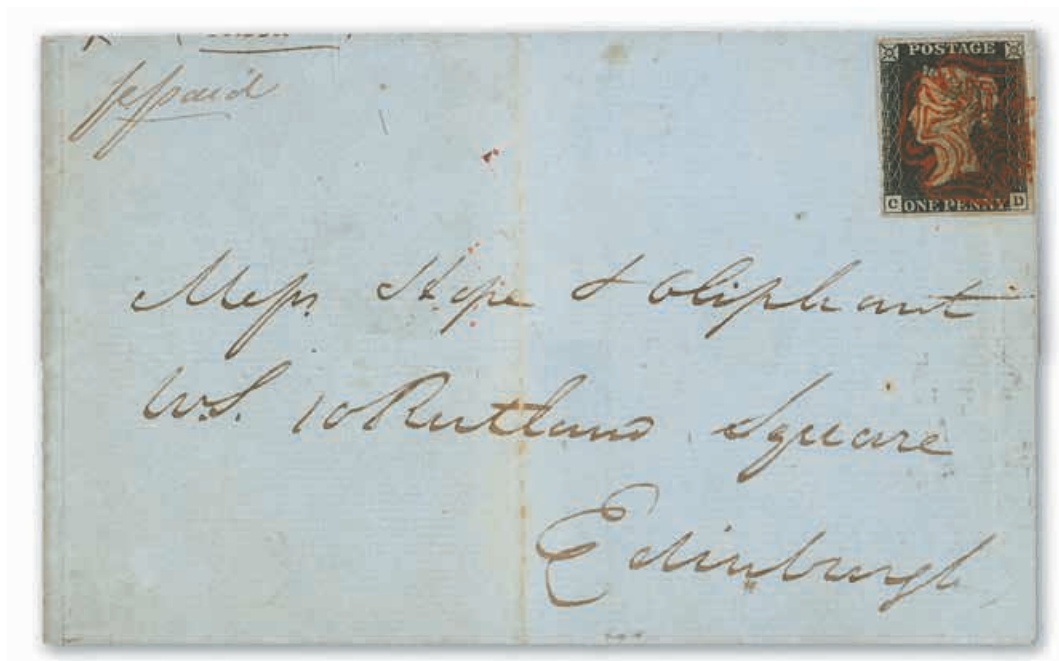 prepaid
POSTAGE
C ONE PENNY D
Messrs Hope & Oliphant
W.S. 10 Rutland Square
Edinburgh